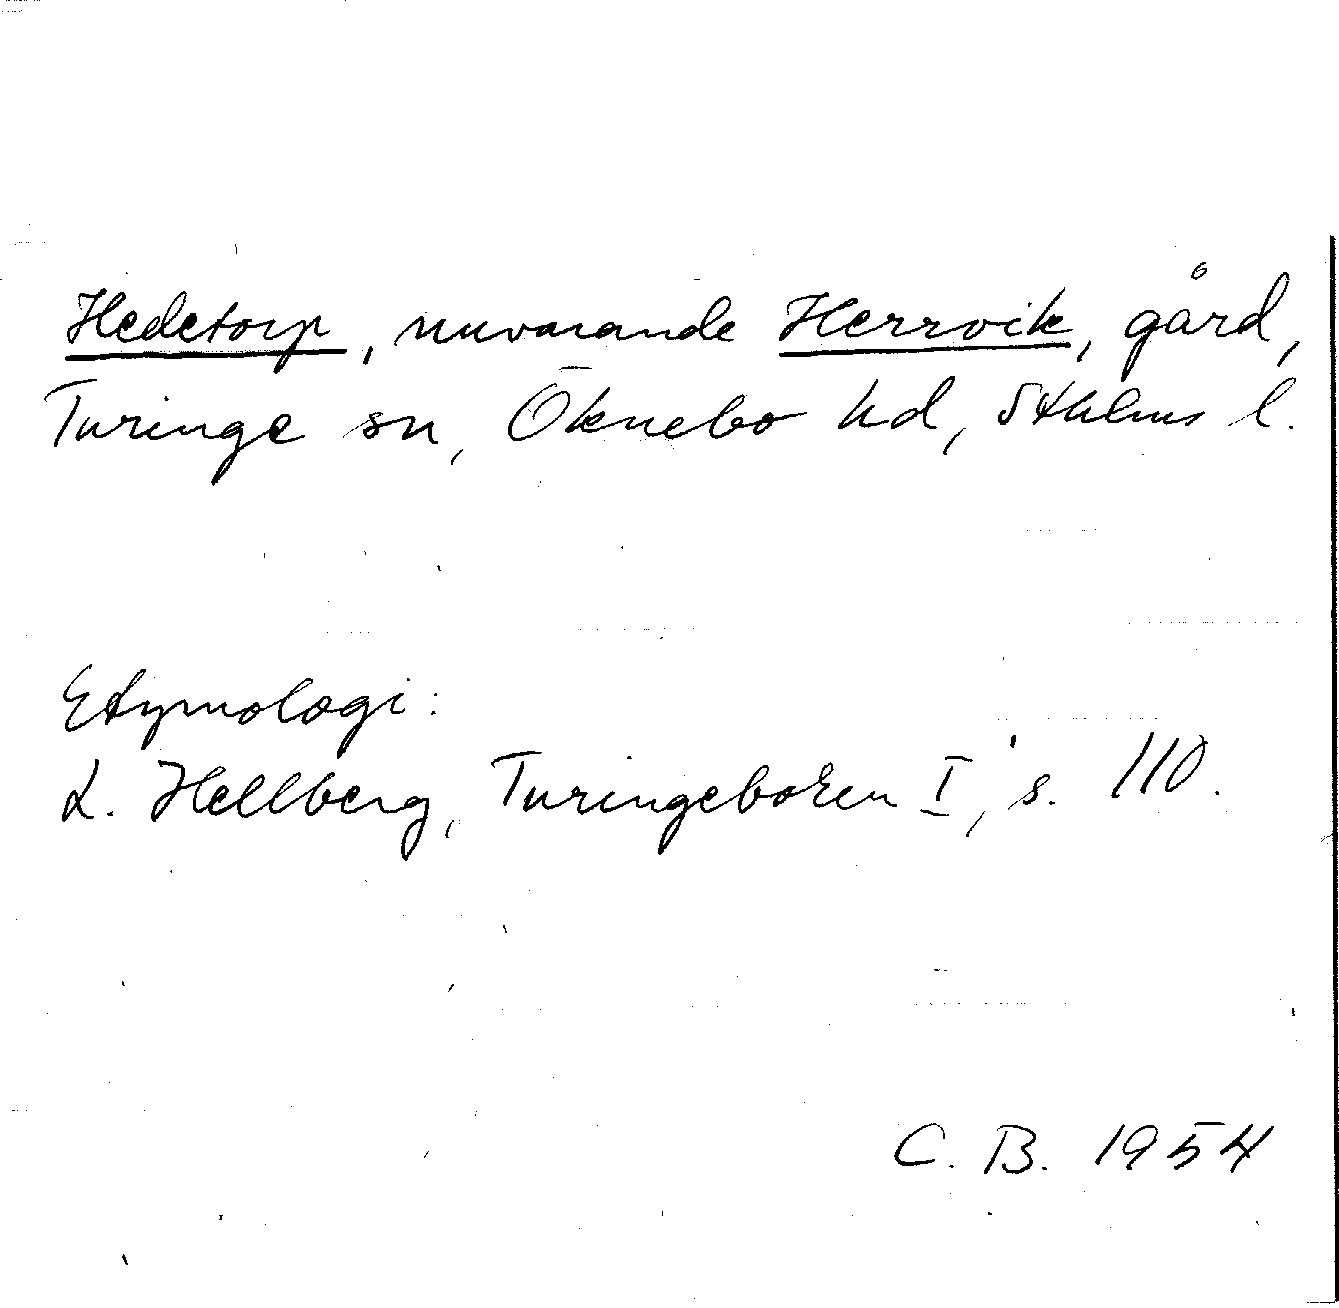 Hedetorp, nuvarande Herrvik, gård,
Turinge sn, Öknebo hd, Sthlms l.
Etymologi:
L. Hellberg, Turingeboken I, s. 110.
C. B. 1954